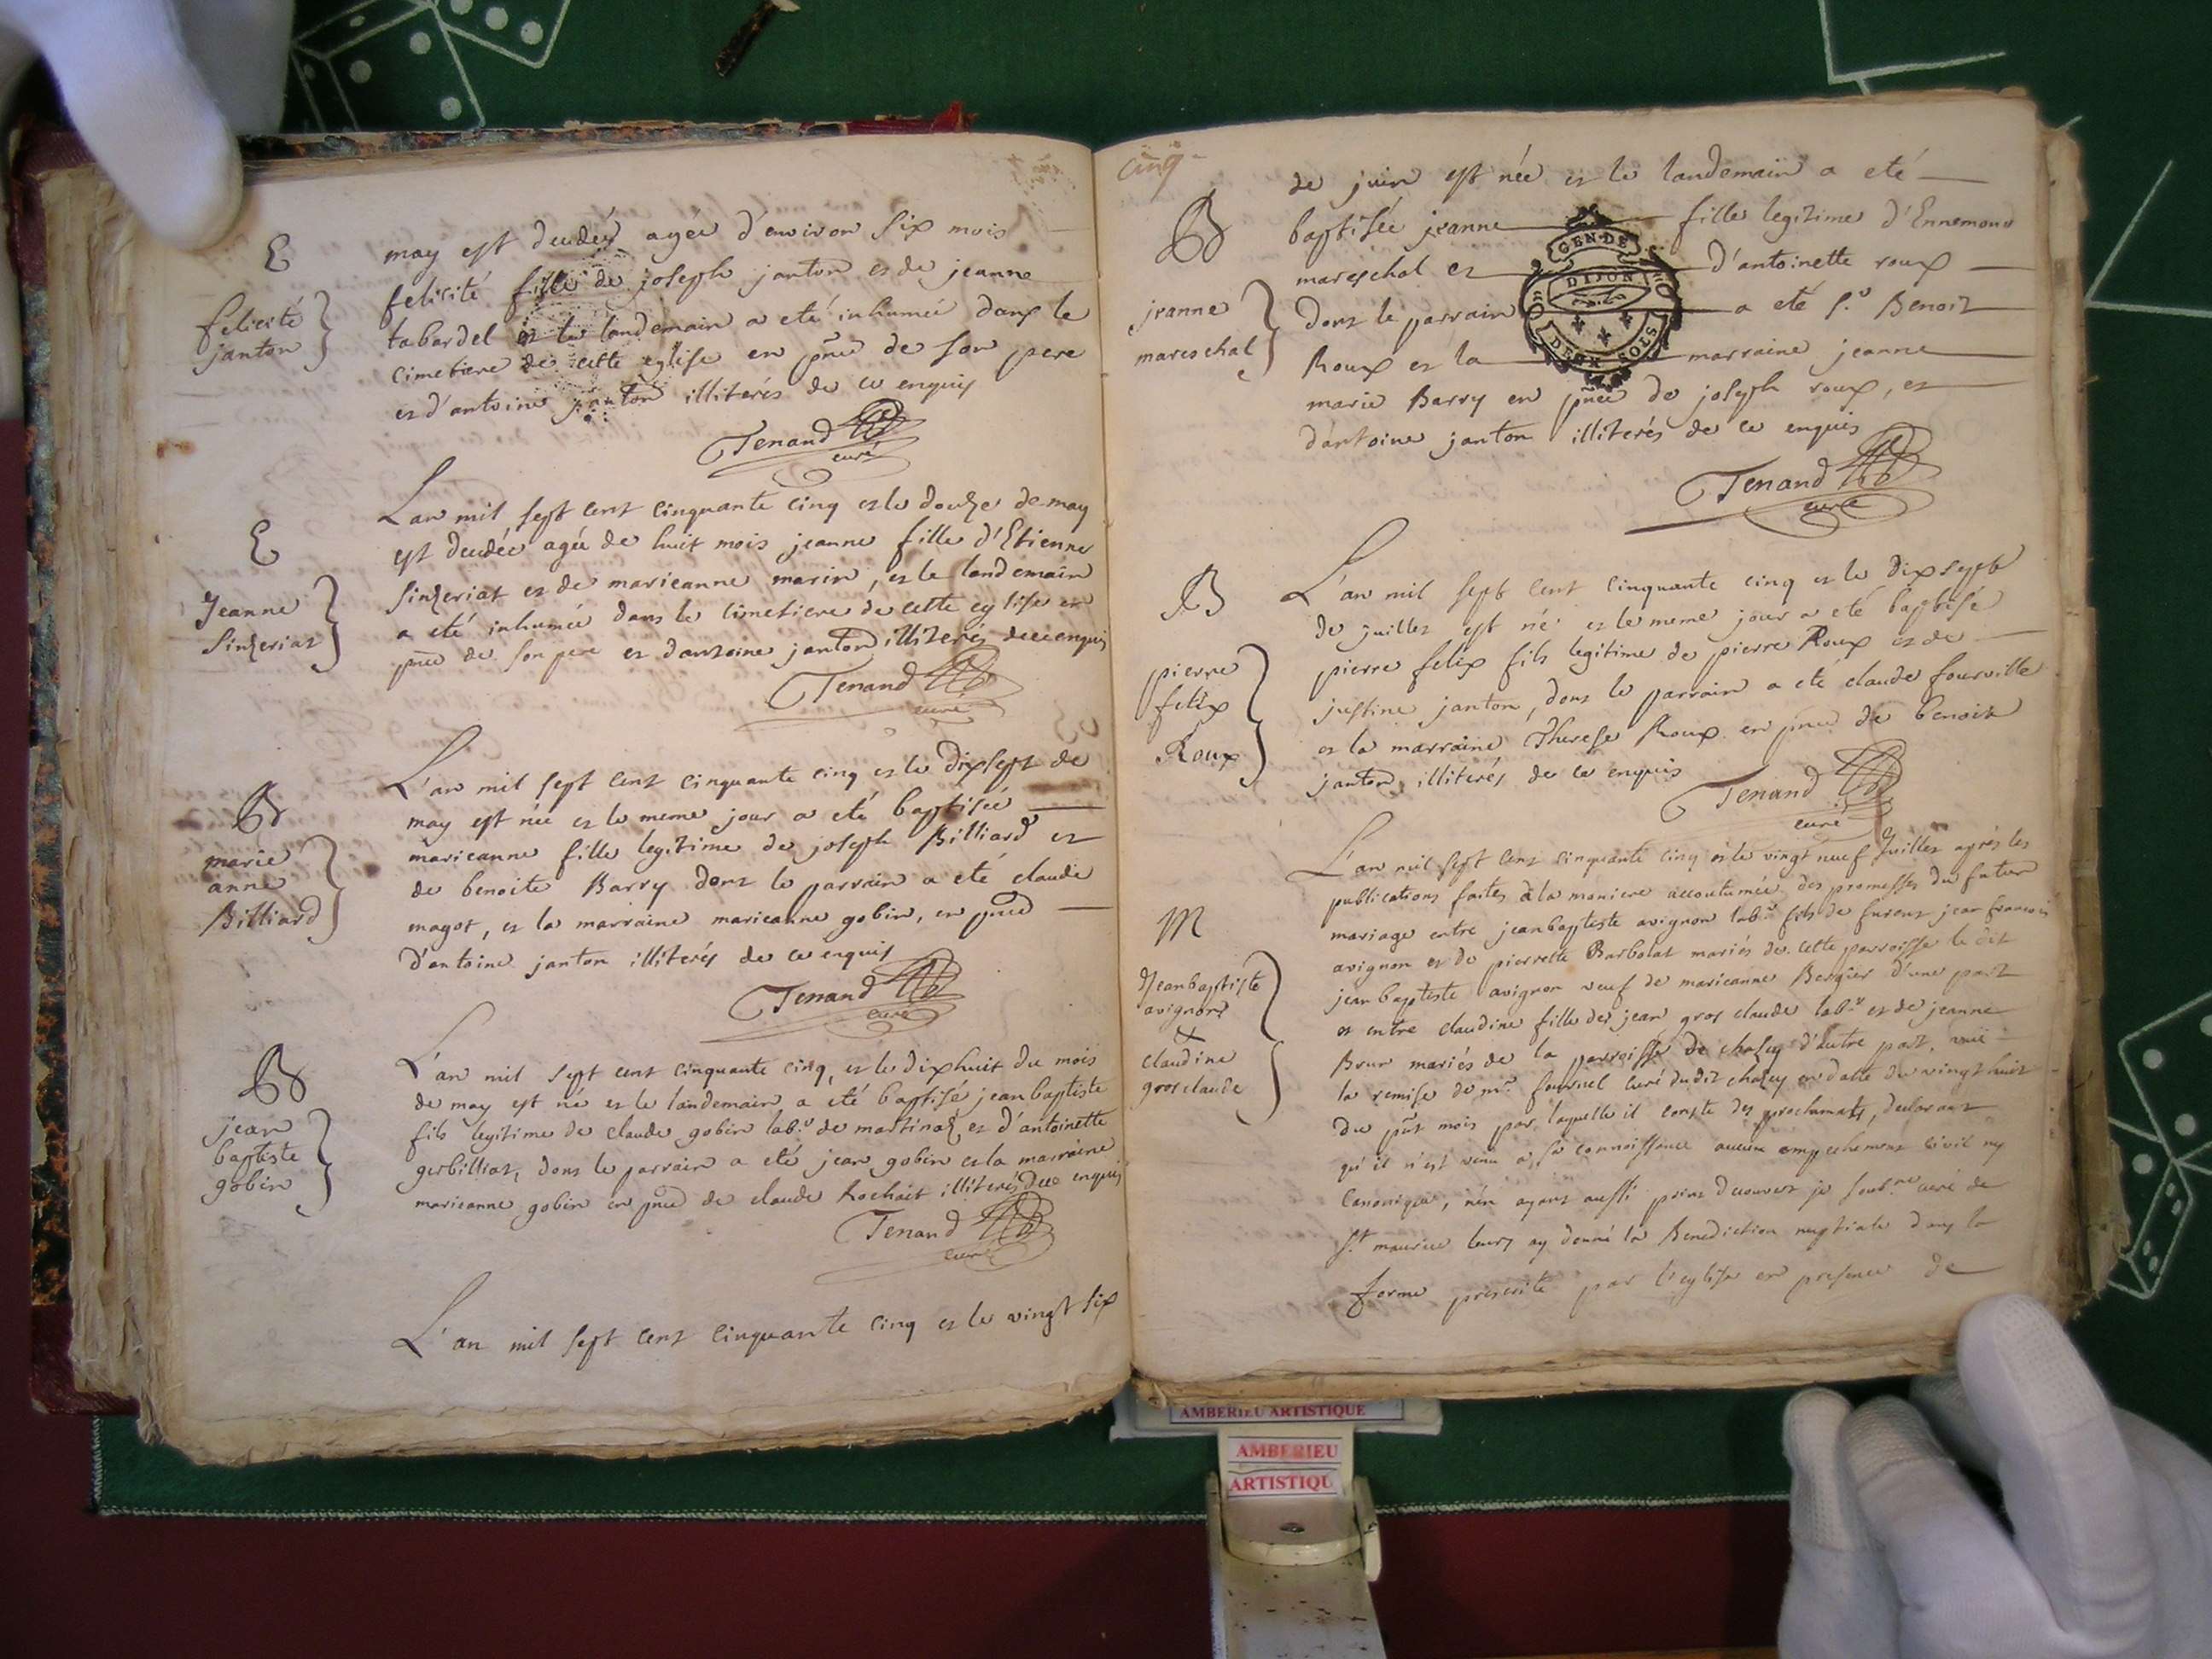 E
felicité
janton
may est decedée agée d'environ six mois
felicité fille de joseph janton et de jeanne
tabardel et le landemain a eté inhumée dans le
cimetiere de cette eglise en pnce de son pere
et d'antoine janton illiterés de ce enquis
Tenand
curé
E
Jeanne
Sinzeriat
L'an mil sept cent cinquante cinq et le douze de may
est decedée agée de huit mois jeanne fille d'Etienne
Sinzeriat et de marieanne marin, et le landemain
a eté inhumée dans le cimetiere de cette eglise en
pnce de son pere et d'antoine janton illiterés de ce enquis
Tenand
curé
B
marie
anne
Billiard
L'an mil sept cent cinquante cinq et le dixsept de
may est née et le meme jour a eté baptisée
marieanne fille legitime de joseph Billiard et
de benoite Barry dont le parrain a eté claude
magot, et la marraine marieanne gobin, en pnce
d'antoine janton illiterés de ce enquis
Tenand
curé
B
jean
baptiste
gobin
L'an mil sept cent cinquante cinq, et le dixhuit du mois
de may est né et le landemain a eté baptisé jeanbaptiste
fils legitime de claude gobin labr de martinaz et d'antoinette
gerbilliat, dont le parrain a eté jean gobin et la marraine
marieanne gobin en pnce de claude Rochait illiterés de ce enquis
Tenand
curé
L'an mil sept cent cinquante cinq et le vingt six
cinq
B
jeanne
mareschal
de juin est née et le landemain a eté
baptisée jeanne fille legitime d'Ennemond
mareschal et d'antoinette roux
dont le parrain a eté Sr Benoit
Roux et la marraine jeanne
marie Barry en pnce de joseph roux, et
d'antoine janton illiterés de ce enquis
GEN. DE
DIJON
DEUX SOLS
Tenand
curé
B
pierre
felix
Roux
L'an mil sept cent cinquante cinq et le dixsept
de juillet est né et le meme jour a eté baptisé
pierre felix fils legitime de pierre Roux et de
justine janton, dont le parrain a eté claude fourville
et la marraine Therese Roux en pnce de benoit
janton illiterés de ce enquis
Tenand
curé
M
Jeanbaptiste
avignon
&
claudine
grosclaude
L'an mil sept cent cinquante cinq et le vingt neuf Juillet après les
publications faites à la maniere accoutumée des promesses du futur
mariage entre jeanbaptiste avignon labr fils de furent jean francois
avignon et de pierrette Barbolat mariés de cette parroisse le dit
jeanbaptiste avignon veuf de marieanne Bergier d'une part
et entre claudine fille de jean gros claude labr et de jeanne
Brun mariés de la parroisse de chazey d'autre part, vüe
la remise de mr fournel curé dudit chazey en datte du vingt huit
du pnt mois par laquelle il conste des proclamats, declarant
qu'il n'est venu à sa connoissance aucun empechement civil ny
Canonique, n'en ayant aussi point decouvert je sousne curé de
St maurice leurs ay donné la Benediction nuptiale dans la
forme prescrite par l'eglise en presence de
AMBERIEU ARTISTIQUE
AMBERIEU
ARTISTIQU